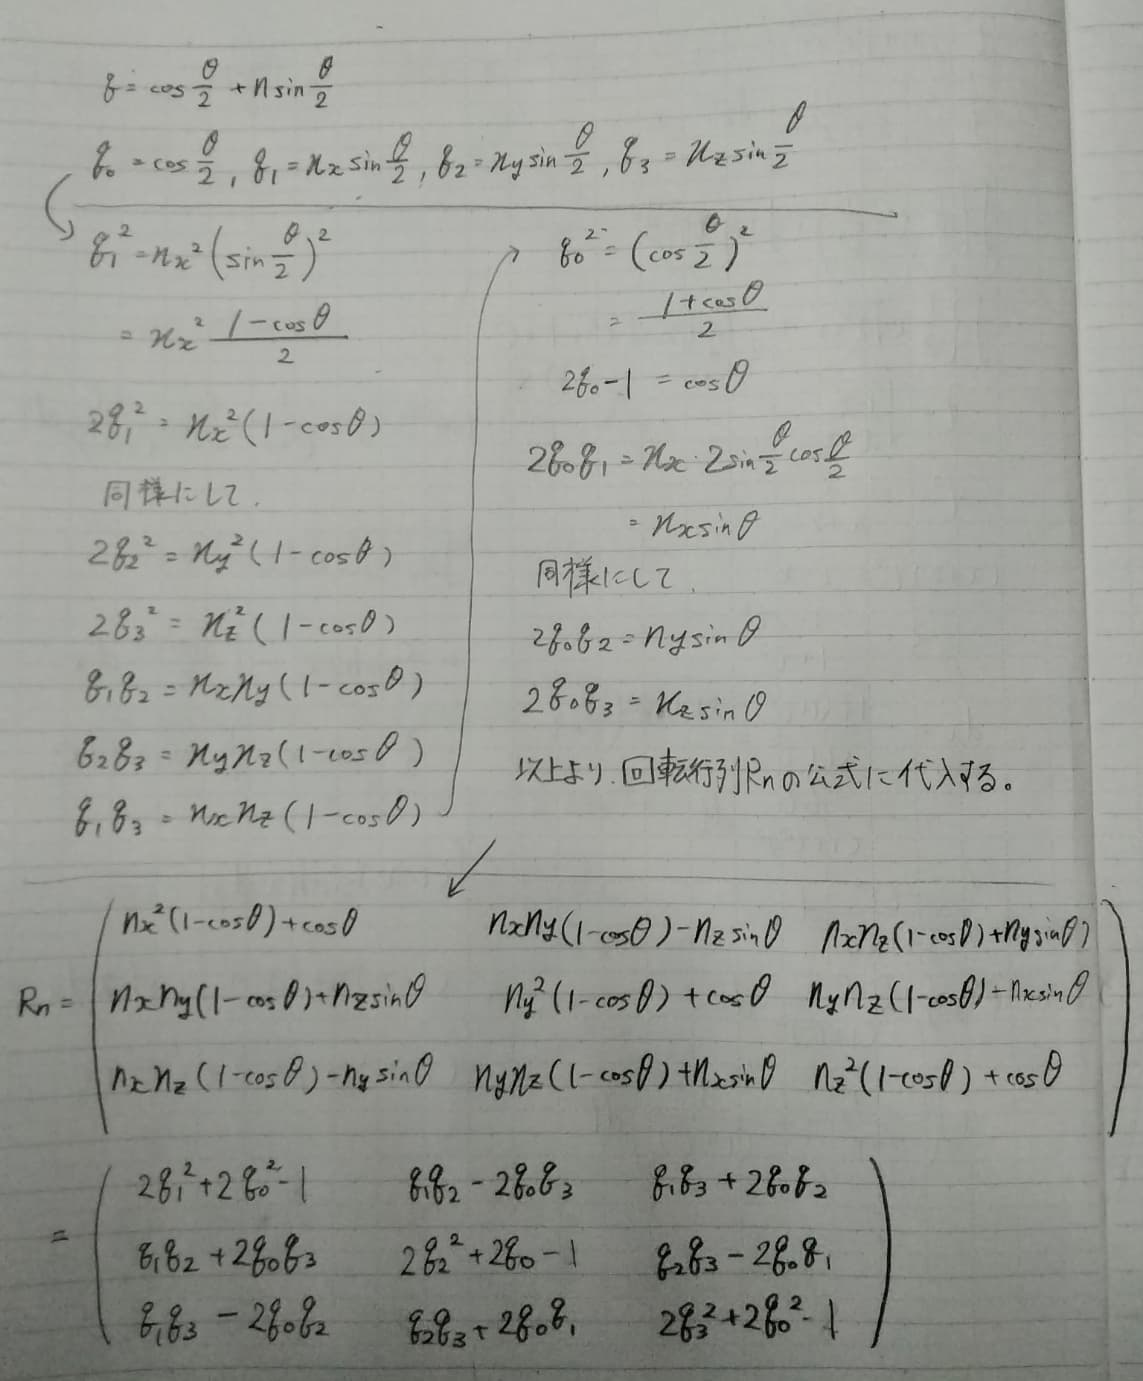 q = cos θ/2 + n sin θ/2
q₀ = cos θ/2, q₁ = nx sin θ/2, q₂ = ny sin θ/2, q₃ = nz sin θ/2
q₁² = nx² (sin θ/2)²
= nx² (1-cosθ)/2
2q₁² = nx²(1-cosθ)
同様にして.
2q₂² = ny²(1-cosθ)
2q₃² = nz²(1-cosθ)
q₁q₂ = nxny(1-cosθ)
q₂q₃ = nynz(1-cosθ)
q₁q₃ = nxnz(1-cosθ)
q₀² = (cos θ/2)²
= (1+cosθ)/2
2q₀-1 = cosθ
2q₀q₁ = nx・2sin θ/2 cos θ/2
= nxsinθ
同様にして.
2q₀q₂ = nysinθ
2q₀q₃ = nzsinθ
以上より.回転行列Rnの公式に代入する。
nx²(1-cosθ)+cosθ nxny(1-cosθ)-nzsinθ nxnz(1-cosθ)+nysinθ)
Rn = nxny(1-cosθ)+nzsinθ ny²(1-cosθ)+cosθ nynz(1-cosθ)-nxsinθ
nxnz(1-cosθ)-nysinθ nynz(1-cosθ)+nxsinθ nz²(1-cosθ)+cosθ
2q₁²+2q₀²-1 q₁q₂-2q₀q₃ q₁q₃+2q₀q₂
= q₁q₂+2q₀q₃ 2q₂²+2q₀-1 q₂q₃-2q₀q₁
q₁q₃-2q₀q₂ q₂q₃+2q₀q₁ 2q₃²+2q₀²-1